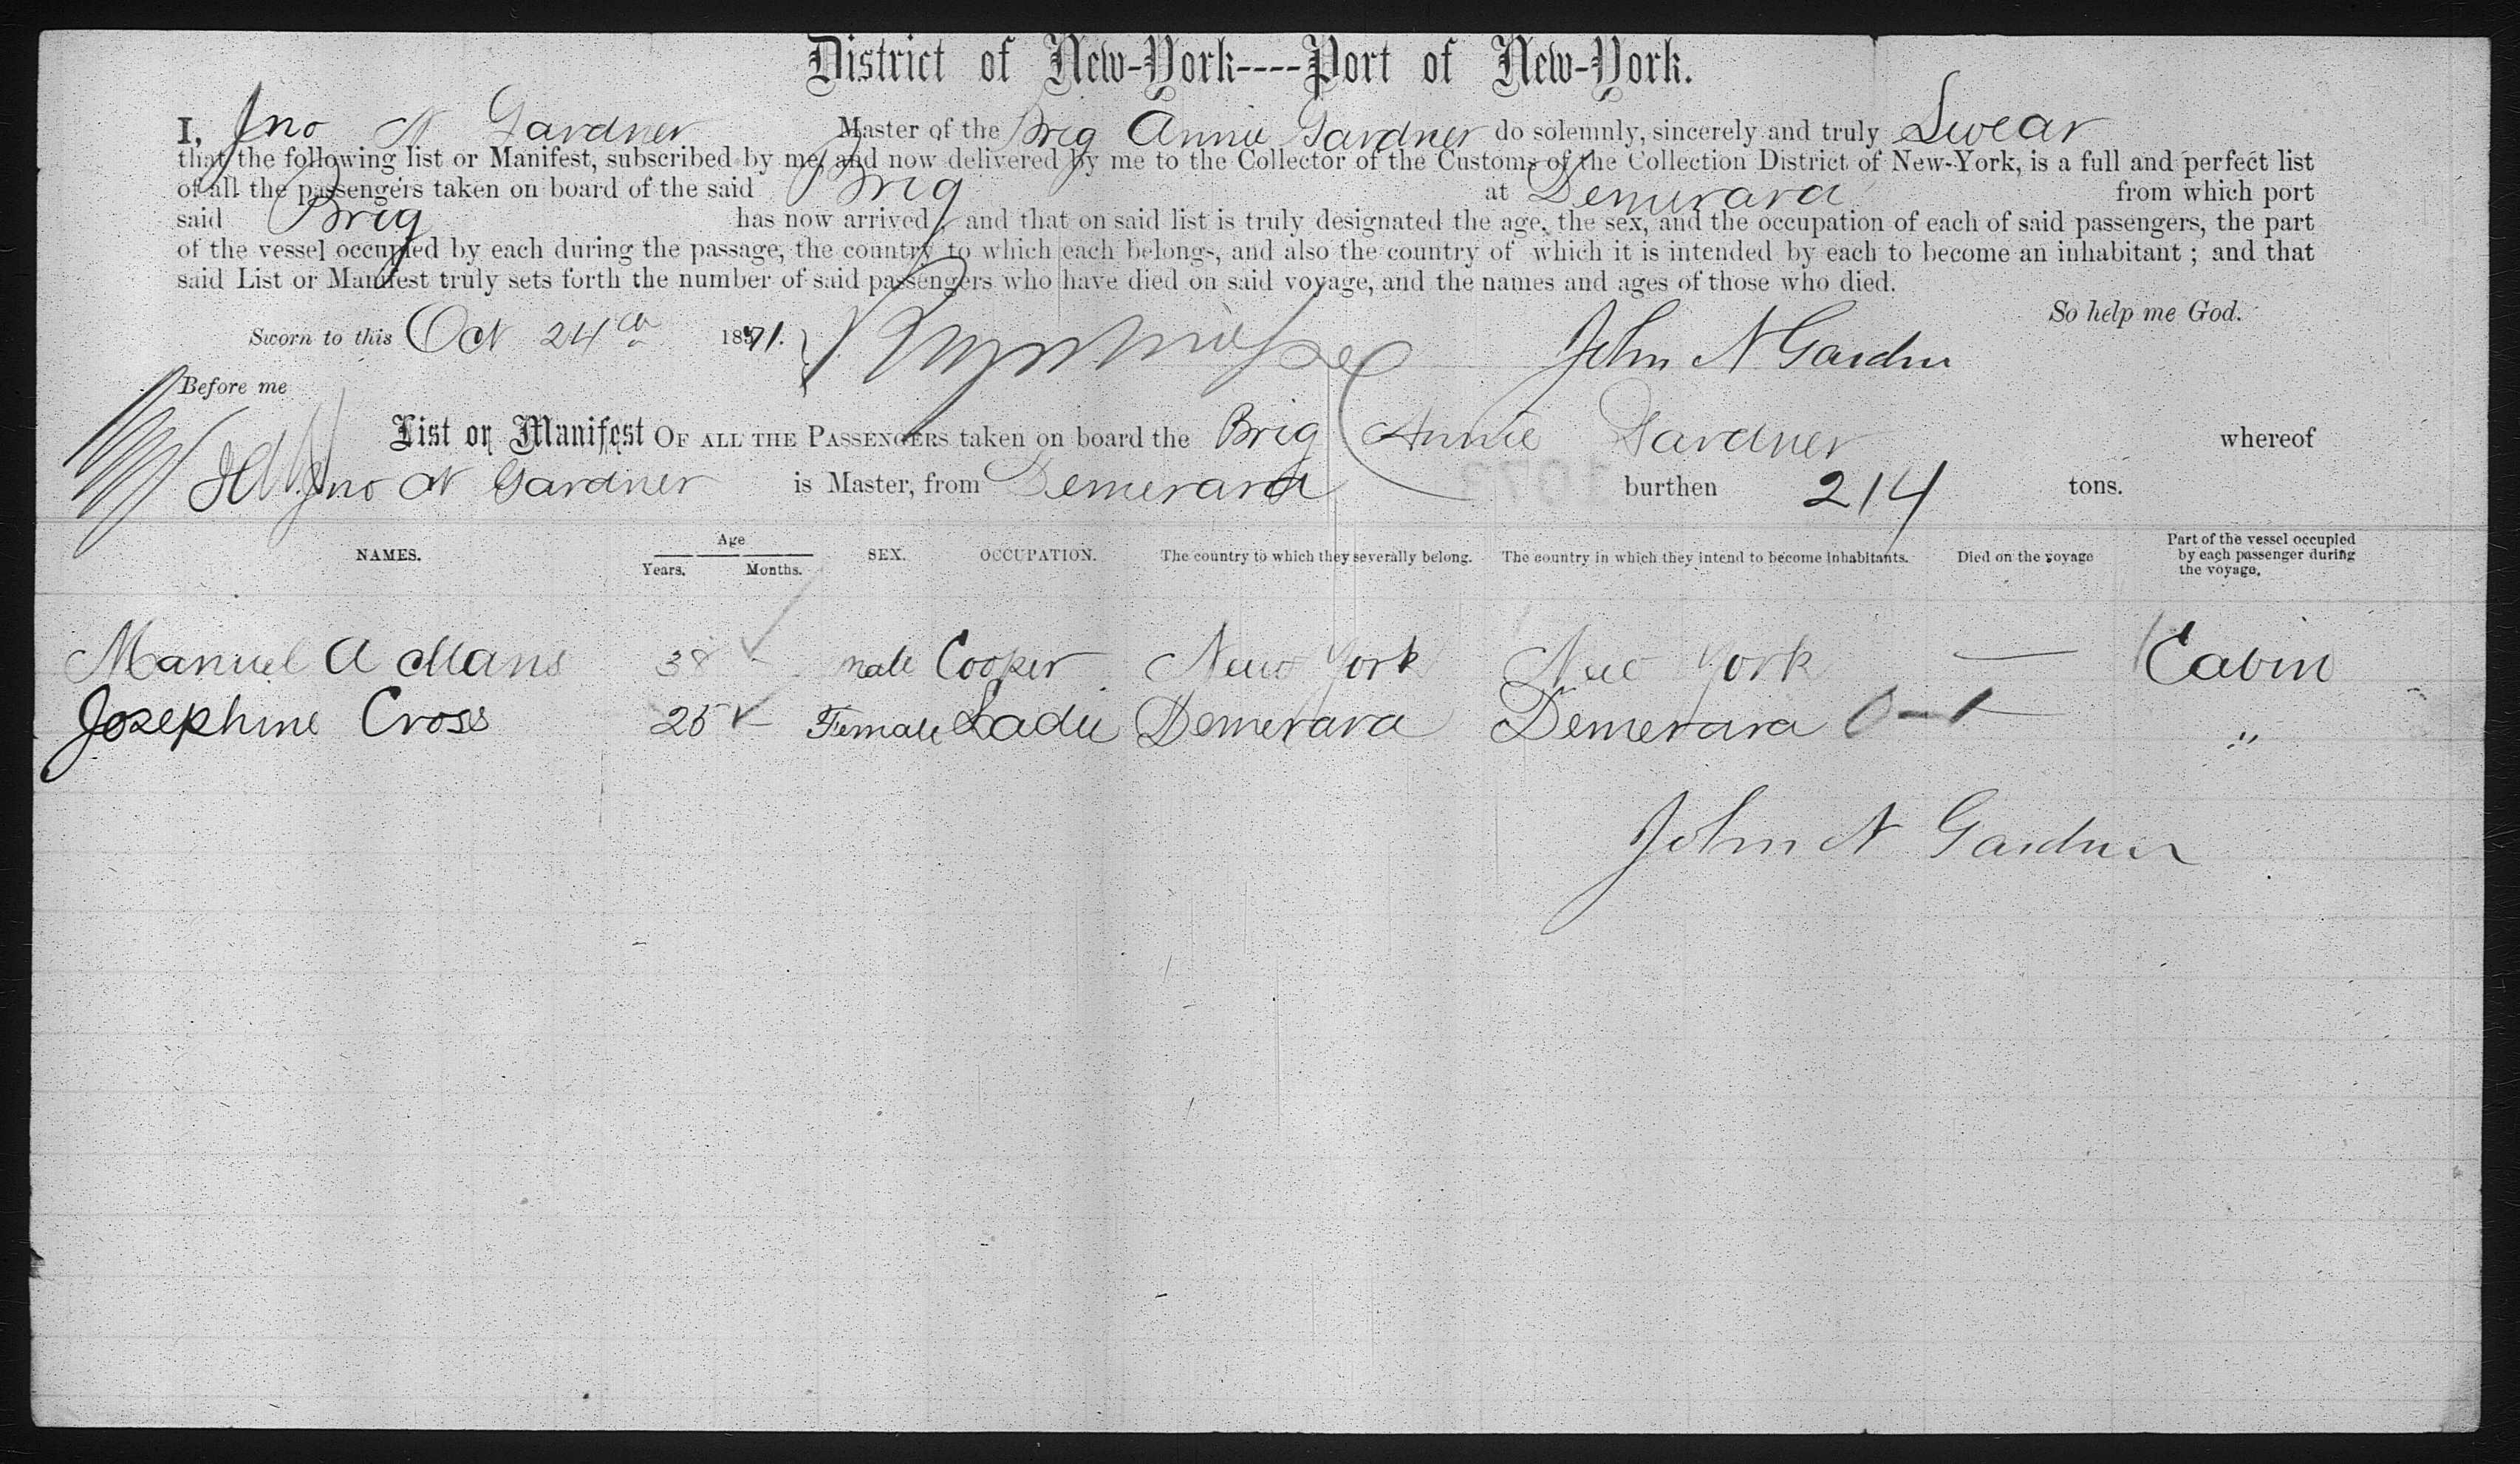 District of New-York----Port of New-York.
I, Jno N Gardner Master of the Brig Annie Gardner do solemnly, sincerely and truly Swear
that the following list or Manifest, subscribed by me, and now delivered by me to the Collector of the Customs of the Collection District of New-York, is a full and perfect list
of all the passengers taken on board of the said Brig at Demerara from which port
said Brig has now arrived; and that on said list is truly designated the age, the sex, and the occupation of each of said passengers, the part
of the vessel occupied by each during the passage, the country to which each belongs, and also the country of which it is intended by each to become an inhabitant; and that
said List or Manifest truly sets forth the number of said passengers who have died on said voyage, and the names and ages of those who died.
So help me God.
Sworn to this Oct 24th 1871. John N Gardner
Before me
List or Manifest OF ALL THE PASSENGERS taken on board the Brig Annie Gardner whereof
Jno N Gardner is Master, from Demerara burthen 214 tons.
NAMES. Age Years. Months. SEX. OCCUPATION. The country to which they severally belong. The country in which they intend to become inhabitants. Died on the voyage Part of the vessel occupied by each passenger during the voyage.
Manuel A Mans 38 male Cooper New York New York — Cabin
Josephine Cross 25 – Female Ladie Demerara Demerara — "
John N Gardner